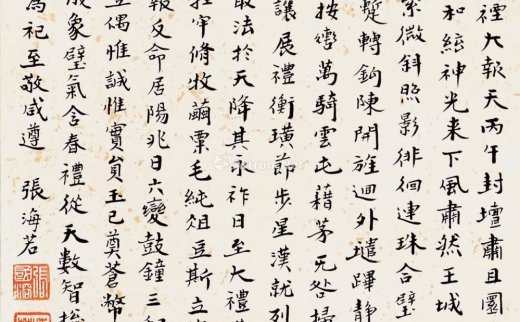 禋大報天丙午封壇肅且圜
和絃神光来下風肅然王城
紫微斜照影徘徊連珠合璧
蹔轉鈎陳開旌迴外壝蹕静
按轡萬騎雲屯藉茅无咎掃
讓展禮衡璜節步星漢就列
取法於天降其永祚日至大禮
牲牢脩牧繭栗毛純俎豆斯立
報反命居陽兆日六變鼓鐘三
立偶惟誠惟實貟玉已奠蒼幣
成象璧氣含春禮從天數智揔
為祀至敬咸遵 張海若